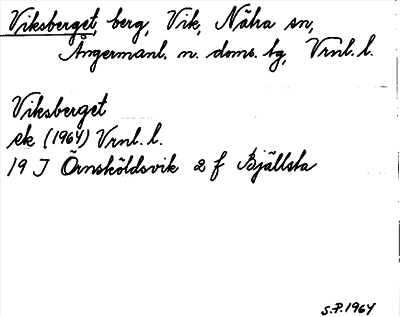 Viksberget, berg, Vik, Nätra sn,
Ångermanl. n. doms. tg, Vrnl. l.
Viksberget
ek (1964) Vrnl. l.
19 J Örnsköldsvik 2 f Bjällsta
S.P. 1964